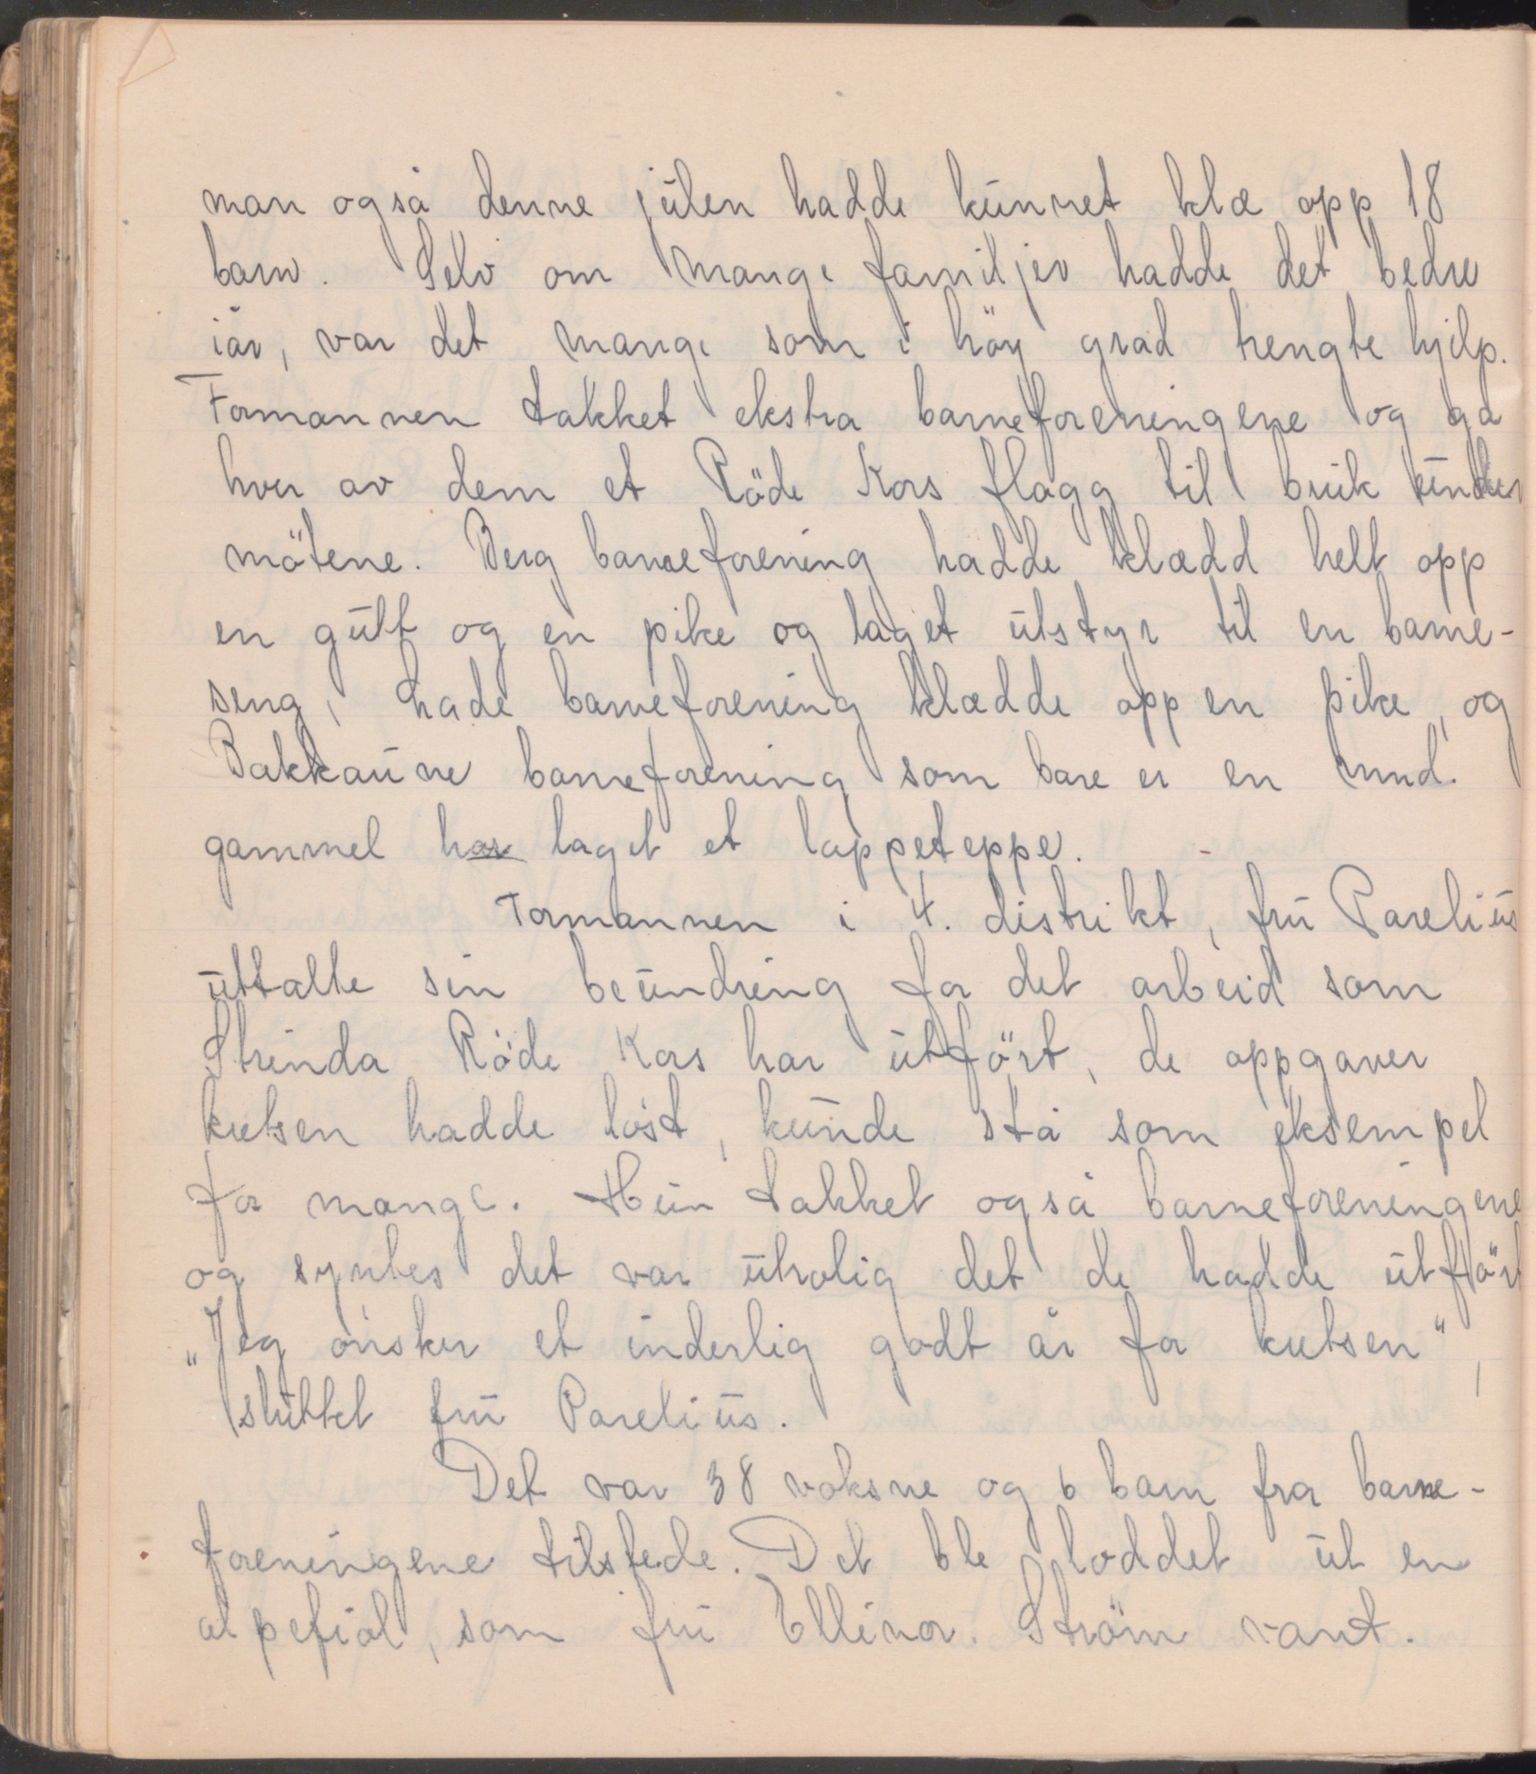 man også denne julen hadde kunnet klæ opp 18
barn. Selv om mange familjer hadde det bedre
iår, var det mange som i höy grad trengte hjelp.
Formannen takket ekstra barneforeningene og ga
hver av dem et Röde Kors flagg til bruk under
mötene. Berg barneforening hadde klædd helt opp
en gutt og en pike og laget utstyr til en barne-
seng, Lade barneforening klædde opp en pike, og
Bakkaune barneforening som bare er en mnd.
gammel har laget et lappeteppe.
Formannen i 4. distrikt, fru Parelius
uttalte sin beundring for det arbeid som
Strinda Röde Kors har utfört, de oppgaver
kretsen hadde löst, kunde stå som eksempel
for mange. Hun takket også barneforeningene
og syntes det var utrolig det de hadde utfört
„Jeg önsker et inderlig godt år for kretsen",
sluttet fru Parelius.
Det var 38 voksne og 6 barn fra barne-
foreningene tilstede. Det ble loddet ut en
alpefiol, som fru Ellinor Ström vant.